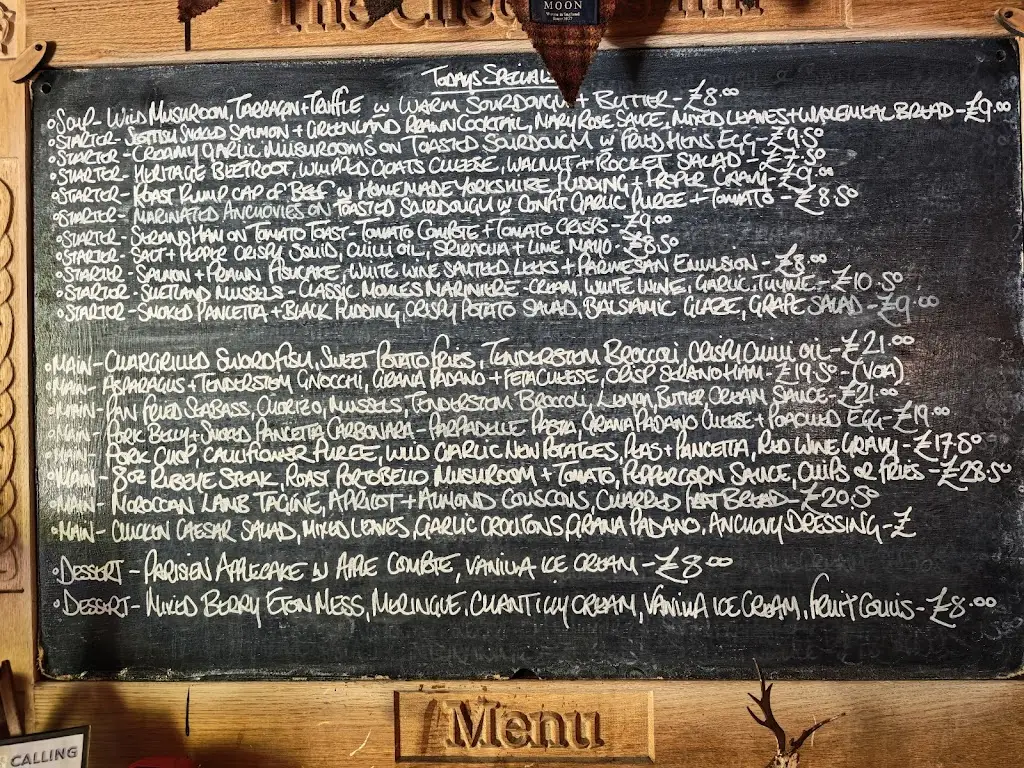 The Che
MOON
TODAYS SPECIALS
SOUP - WILD MUSHROOM, TARRAGON + TRUFFLE W WARM SOURDOUGH + BUTTER - £8.00
STARTER - SCOTTISH SMOKED SALMON + GREENLAND PRAWN COCKTAIL, MARY ROSE SAUCE, MIXED LEAVES + WHOLEMEAL BREAD - £9.00
STARTER - CREAMY GARLIC MUSHROOMS ON TOASTED SOURDOUGH W FRIED HENS EGG - £9.50
STARTER - HERITAGE BEETROOT, WHIPPED GOATS CHEESE, WALNUT + ROCKET SALAD - £7.50
STARTER - ROAST RUMP CAP OF BEEF W HOMEMADE YORKSHIRE PUDDING + PROPER GRAVY - £9.00
STARTER - MARINATED ANCHOVIES ON TOASTED SOURDOUGH W CONFIT GARLIC PUREE + TOMATO - £8.50
STARTER - SERANO HAM ON TOMATO TOAST - TOMATO COMPOTE + TOMATO CRISPS - £9.00
STARTER - SALT + PEPPER CRISPY SQUID, CHILLI OIL, SRIRACHA + LIME MAYO - £8.50
STARTER - SALMON + PRAWN FISHCAKE, WHITE WINE SAUTEED LEEKS + PARMESAN EMULSION - £8.00
STARTER - SHETLAND MUSSELS - CLASSIC MOULES MARINIERE - CREAM, WHITE WINE, GARLIC, THYME - £10.50
STARTER - SMOKED PANCETTA + BLACK PUDDING, CRISPY POTATO SALAD, BALSAMIC GLAZE, GRAPE SALAD - £9.00
MAIN - CHARGRILLED SWORDFISH, SWEET POTATO FRIES, TENDERSTEM BROCCOLI, CRISPY CHILLI OIL - £21.00
MAIN - ASPARAGUS + TENDERSTEM GNOCCHI, GRANA PADANO + FETA CHEESE, CRISP SERANO HAM - £19.50 - (VOA)
MAIN - PAN FRIED SEABASS, CHORIZO, MUSSELS, TENDERSTEM BROCCOLI, LEMON, BUTTER CREAM SAUCE - £21.00
MAIN - PORK BELLY + SMOKED PANCETTA CARBONARA - PARPADELLE PASTA, GRANA PADANO CHEESE + POACHED EGG - £19.00
MAIN - PORK CHOP, CAULIFLOWER PUREE, WILD GARLIC NEW POTATOES, PEAS + PANCETTA, RED WINE GRAVY - £17.50
MAIN - 8OZ RIBEYE STEAK, ROAST PORTOBELLO MUSHROOM + TOMATO, PEPPERCORN SAUCE, CHIPS OR FRIES - £28.50
MAIN - MOROCCAN LAMB TAGINE, APRICOT + ALMOND COUSCOUS CHARRED FLAT BREAD - £20.50
MAIN - CHICKEN CAESAR SALAD, MIXED LEAVES, GARLIC CROUTONS, GRANA PADANO, ANCHOVY DRESSING - £
DESSERT - PARISIEN APPLECAKE W APPLE COMPOTE, VANILLA ICE CREAM - £8.00
DESSERT - MIXED BERRY ETON MESS, MERINGUE, CHANTILLY CREAM, VANILLA ICE CREAM, FRUIT COULIS - £8.00
Menu
CALLING